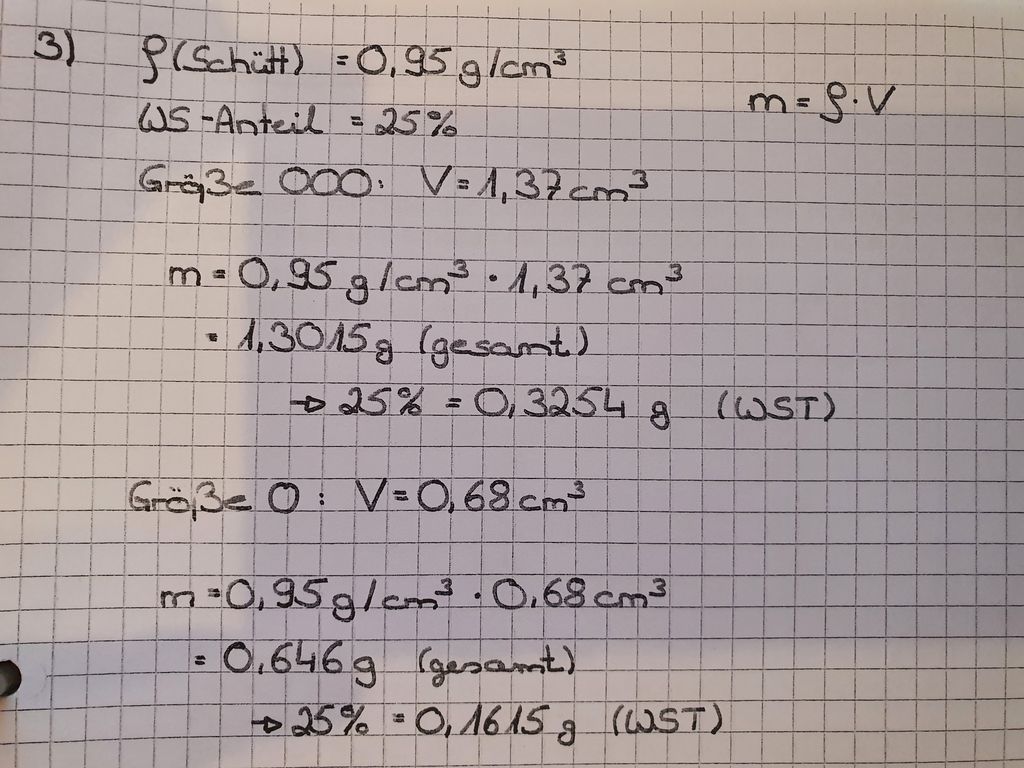 3) ρ(Schütt) = 0,95 g/cm³
m = ρ · V
WS-Anteil = 25%
Größe 000: V = 1,37 cm³
m = 0,95 g/cm³ · 1,37 cm³
= 1,3015 g (gesamt)
→ 25% = 0,3254 g (WST)
Größe 0 : V = 0,68 cm³
m = 0,95 g/cm³ · 0,68 cm³
= 0,646 g (gesamt)
→ 25% = 0,1615 g (WST)